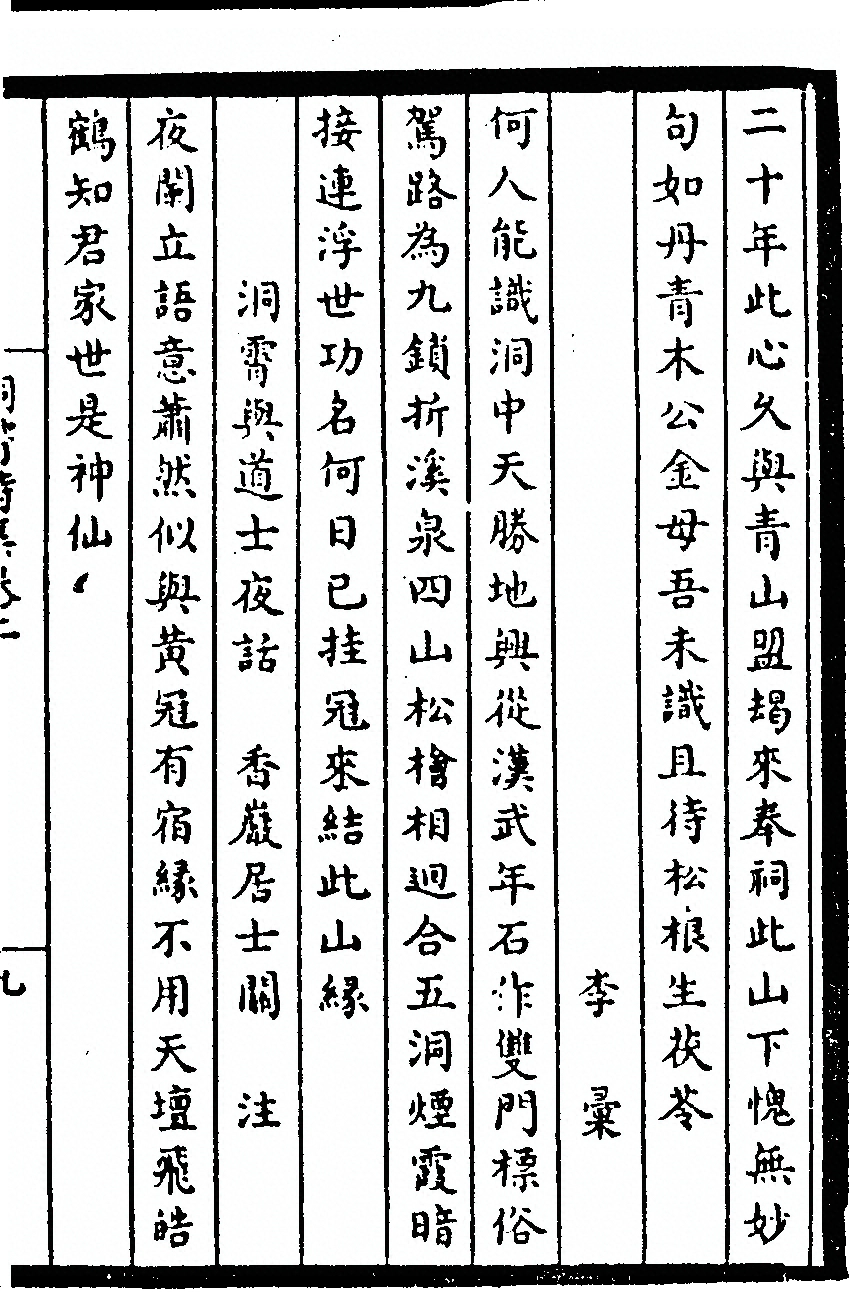 二十年此心久與青山盟朅來奉祠此山下愧無妙
句如丹青木公金母吾未識且待松根生茯苓
李彙
何人能識洞中天勝地興從漢武年石作雙門標俗
駕路為九鎖折溪泉四山松檜相迴合五洞煙霞暗
接連浮世功名何日已挂冠來結此山緣
洞霄與道士夜話 香巖居士關注
夜闌立語意蕭然似與黃冠有宿緣不用天壇飛皓
鶴知君家世是神仙
洞霄詩集卷二
九